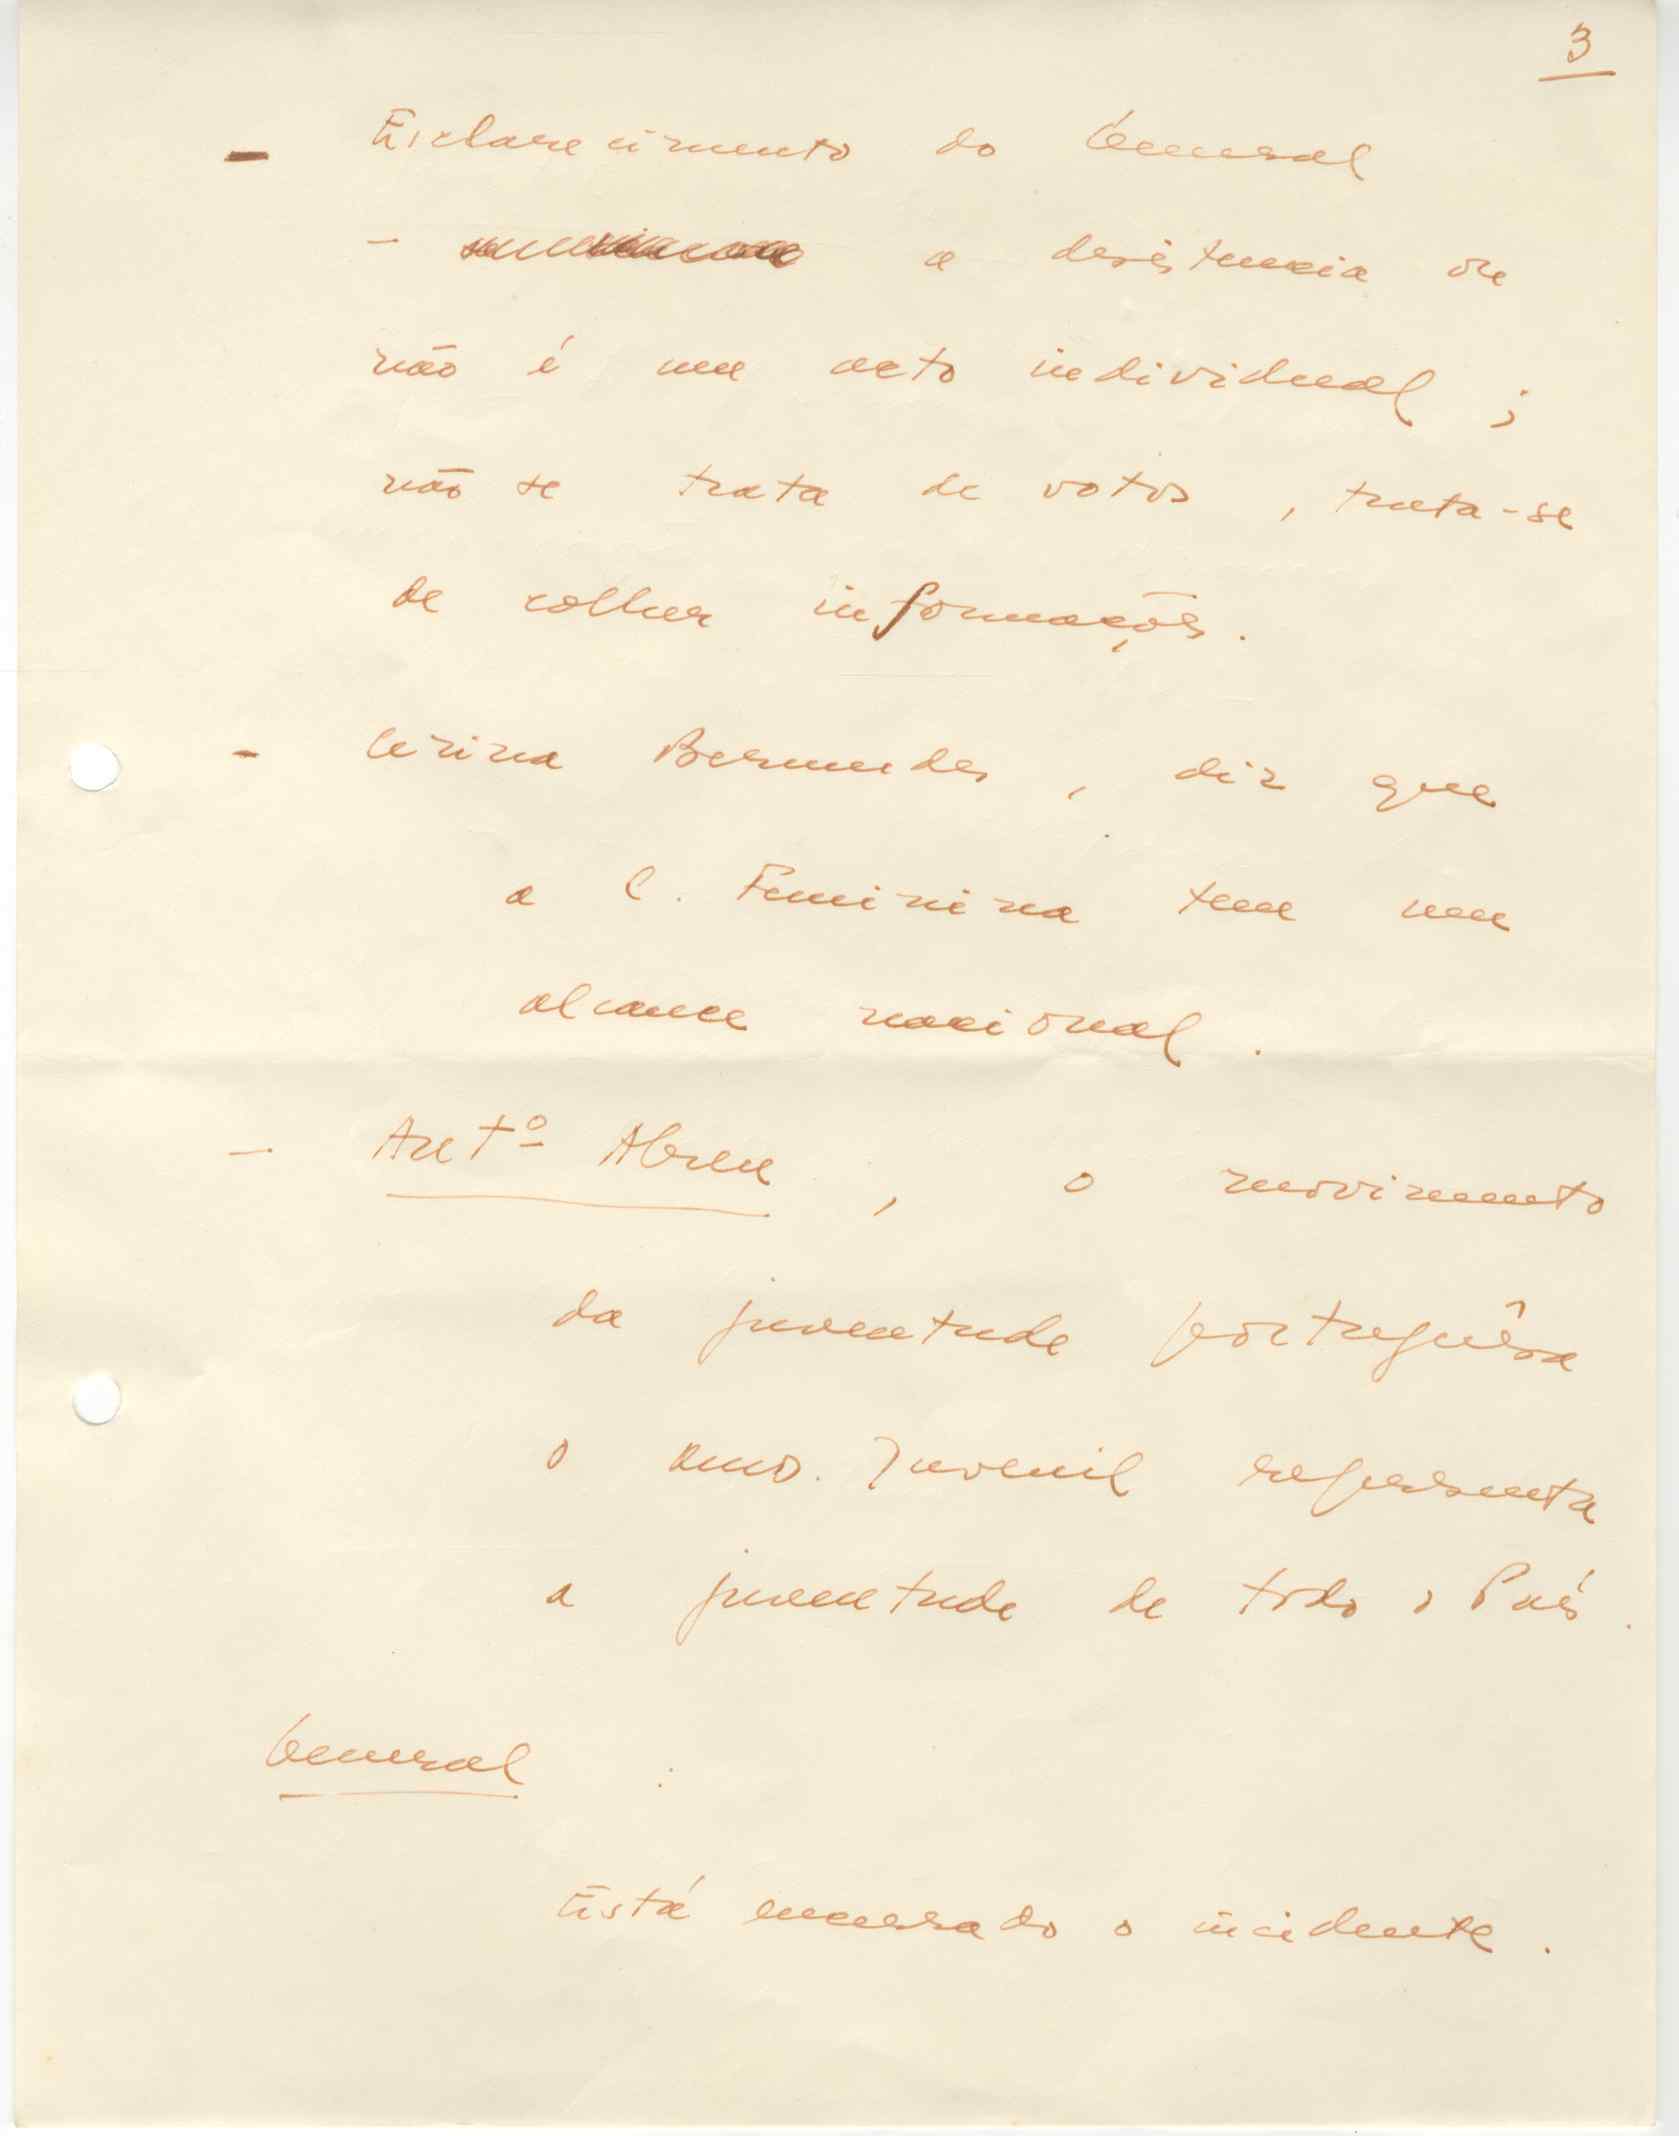 3
- Esclarecimento do General
- a desistencia ou
não é um acto individual ;
não se trata de votos , trata-se
de colher informações .
- Cesina Bermudes , diz que
a C. Feminina tem um
alcance nacional .
- Antº Abreu , o movimento
da juventude portuguêsa
o Juvenil representa
a juventude de todo o País .
General :
Está encerrado o incidente .